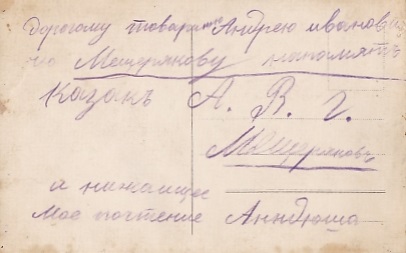 Дорогому товарищу Андрею Иванови
чю Мещерякову на память
Казань А. В. Г.
Мещеряковъ
а нижаищее
Мое почтение Анндюша